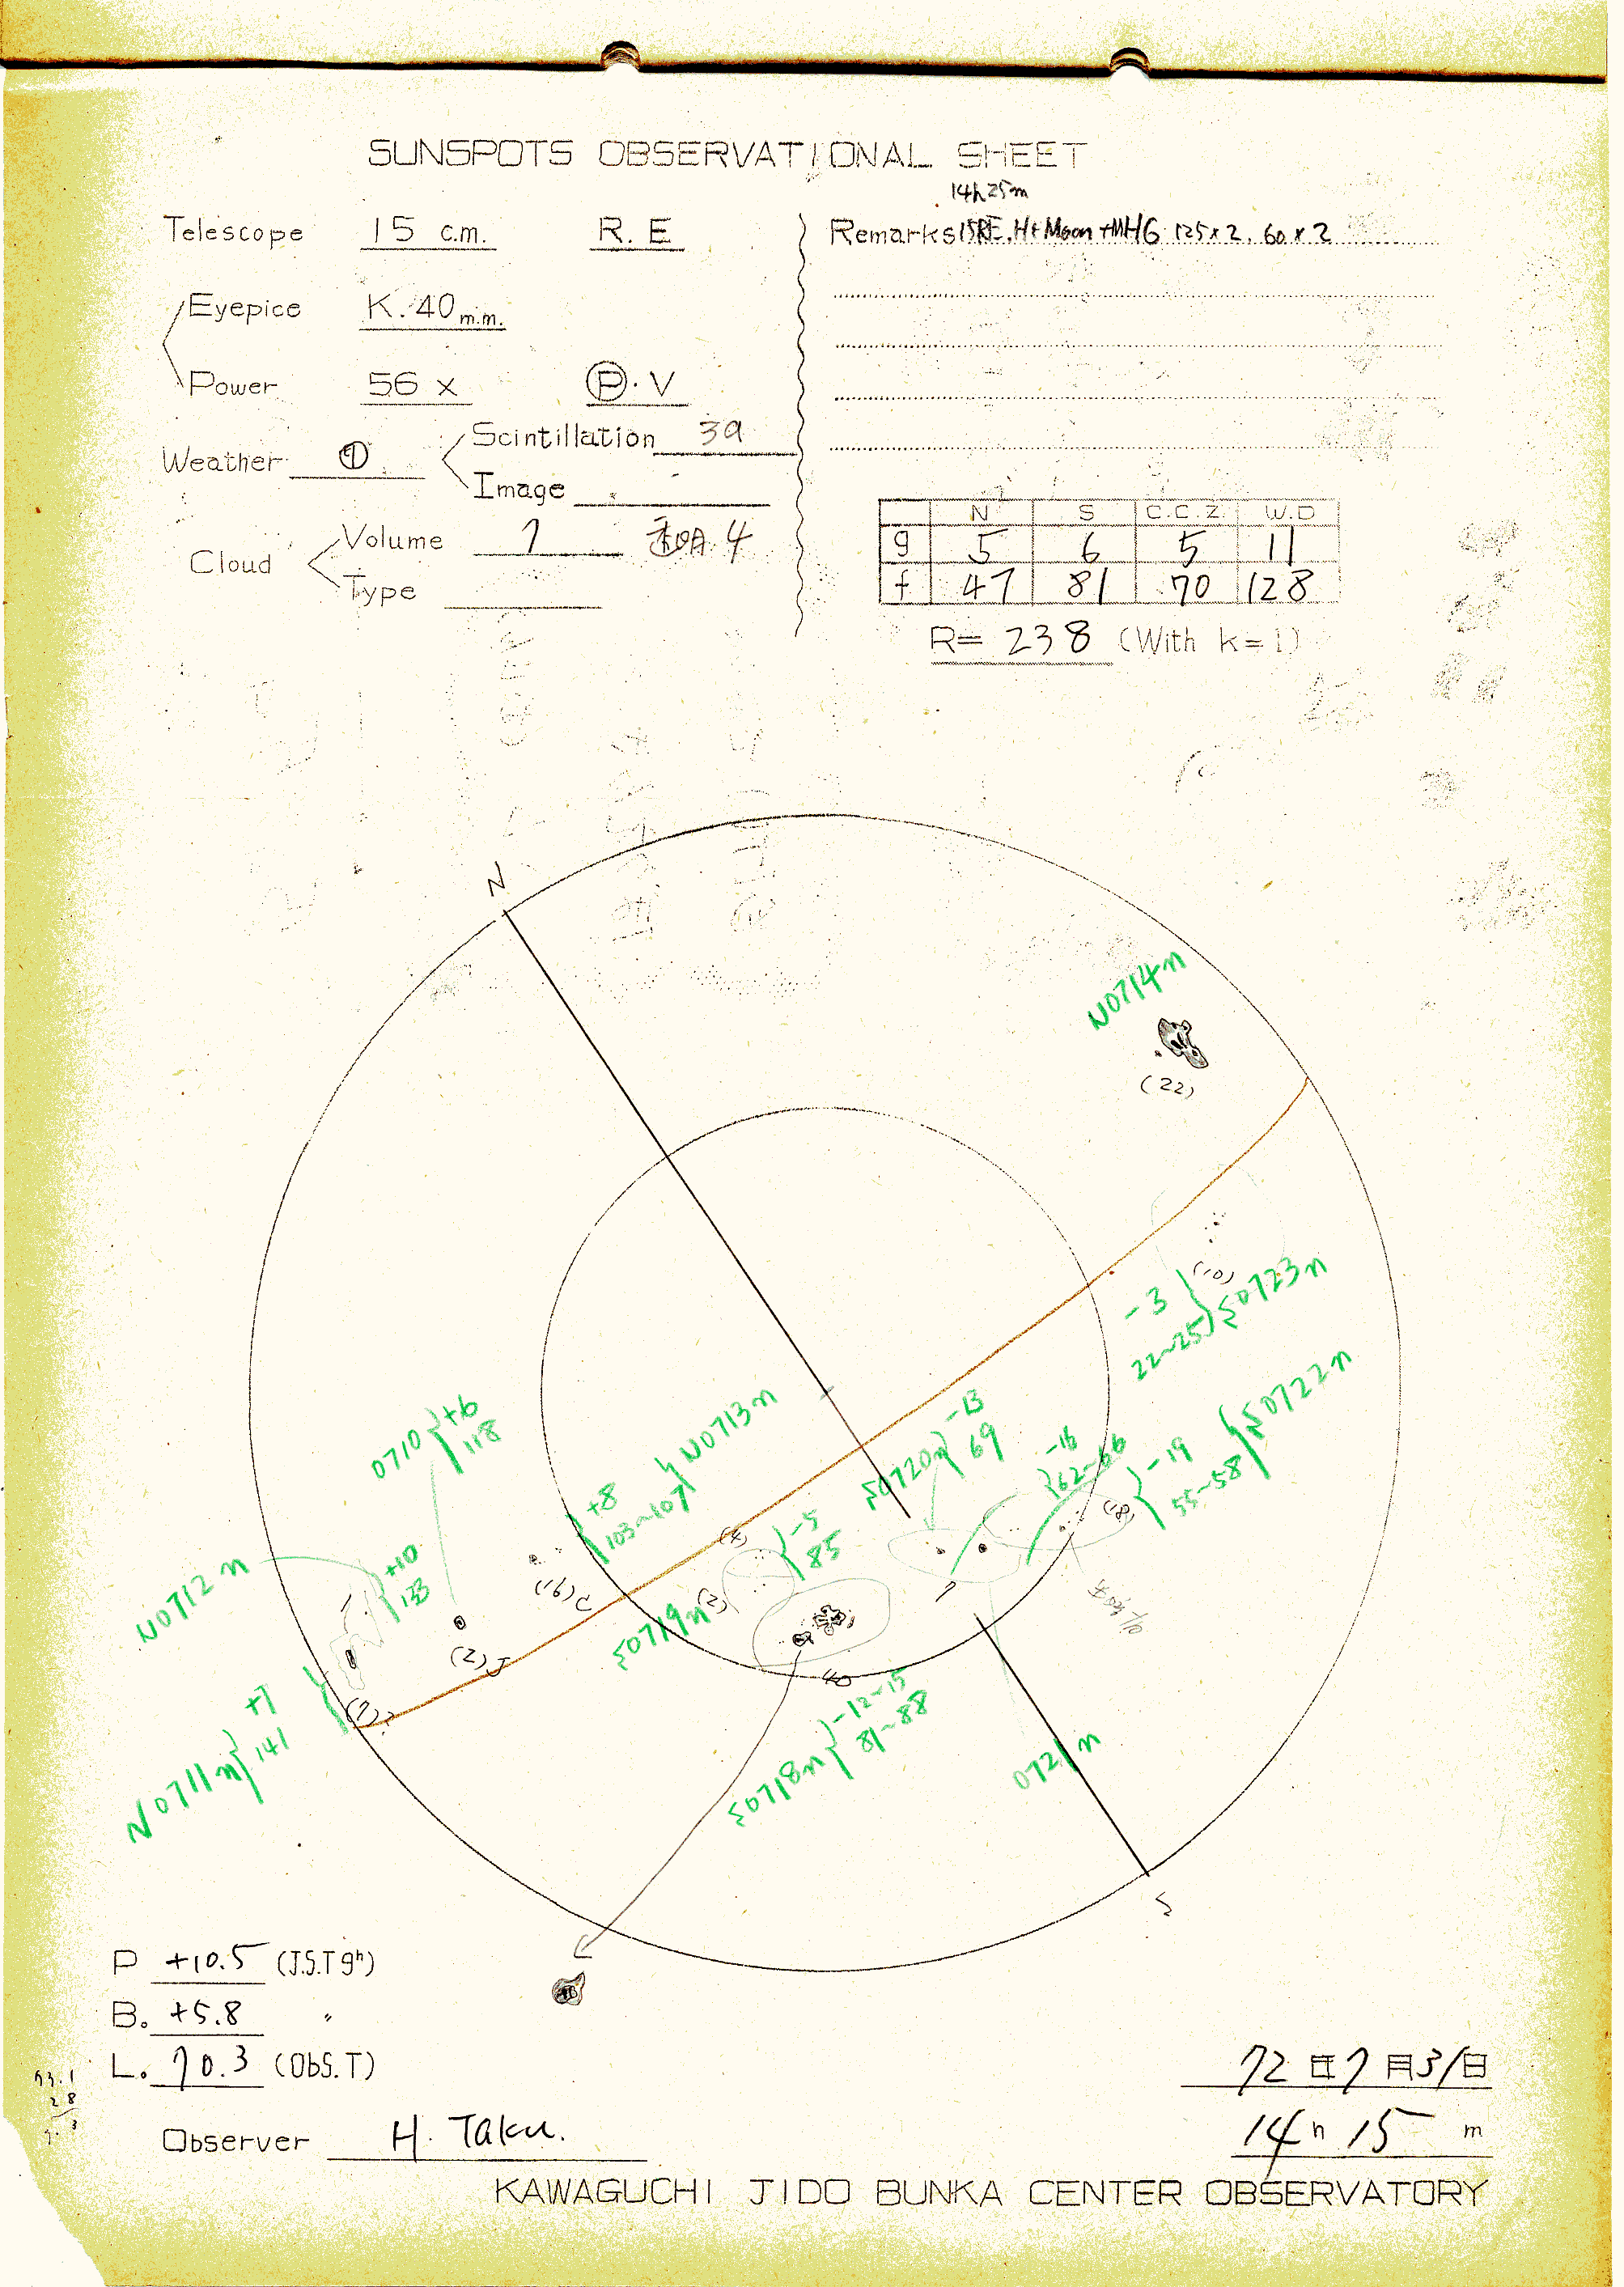 SUNSPOTS OBSERVATIONAL SHEET
14h25m
Telescope 15 c.m. R.E
Remarks 15RE. Hε Moon +MHG 125×2. 60×2
Eyepice K.40 m.m.
Power 56 x Ⓟ・V
Weather ①
Scintillation 39
Image
Cloud
Volume 7 透明 4
Type
N S C.C.Z. W.D
g 5 6 5 11
f 47 81 70 128
R= 238 (With k=1)
N
N0714n
(22)
(10)
-3
22~25
S0723n
S0722n
-13
69
S0720n
-16
62~66
-19
55~58
(18)
N0713n
+8
103~107
0710
+6
118
(4)
-5
85
(2)
S0719n
(16)C
N0712n
+10
133
(2)J
7
(7)?
+7
141
N0711n
40
-12~-15
81~88
S0718n
0721n
S
P +10.5 (J.S.T 9h)
B. +5.8 〃
L. 70.3 (Obs.T)
72年7月31日
14h 15 m
Observer H. Taku.
KAWAGUCHI JIDO BUNKA CENTER OBSERVATORY